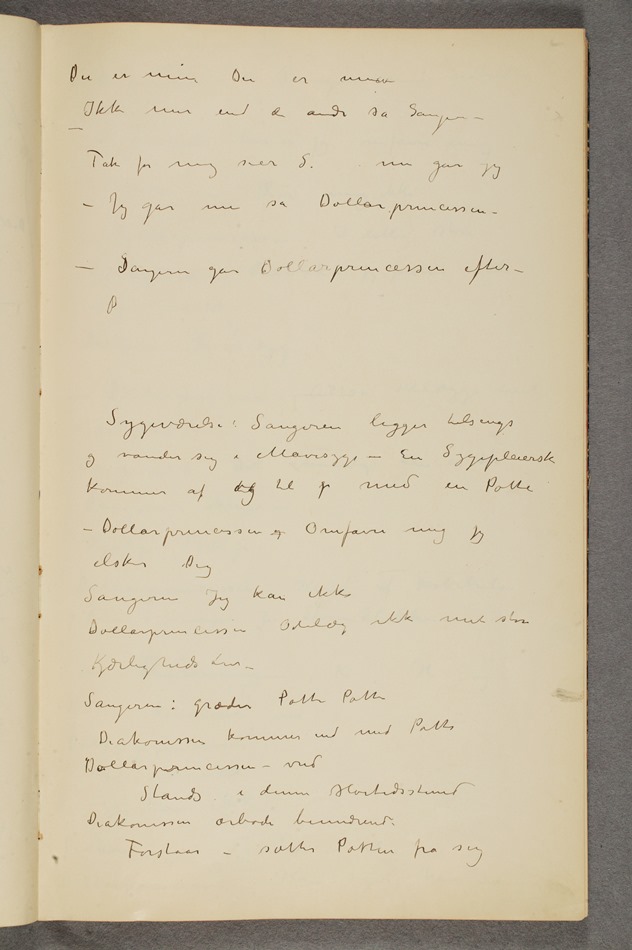 Du er min Du er min
Ikke mer end de andre sa Sangeren –
–
Tak for mig sier S. nu gar jeg
– Jeg gar nu sa Dollarprincessen –
– Sangeren gar Dollarprincessen efter –
Sygeværelse: Sangeren ligger tilsengs
og vander sig i Mavesyge – En Sygepleierske
kommer af og til med en Potte
– Dollarprincessen og Omfavn mig jeg
elsker Dig
Sangeren Jeg kan ikke
Dollarprincessen Ødelæg ikke mit store
Kjærligheds
Sangeren: græder Potte Potte
Diakonissen kommer ind med Potte
Dollarprincessen – vred
Stands i denne Høitidsstund
Diakonissen ærbødi beundrende.
Forstaar – sætter Potten fra sig